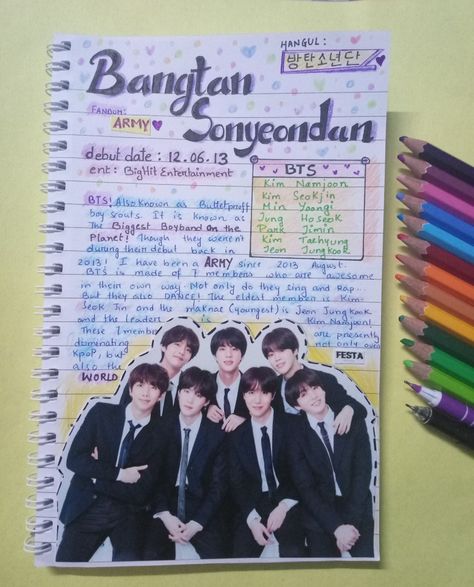 HANGUL:
방탄소년단
Bangtan
Sonyeondan
FANDOM:
ARMY
debut date: 12.06.13
ent: BigHit Entertainment
BTS
Kim Namjoon
Kim Seokjin
Min Yoongi
Jung Hoseok
Park Jimin
Kim Taehyung
Jeon Jungkook
BTS! Also known as Bulletproof
boy scouts. It is known as
The Biggest Boyband On the
Planet! Though they weren't
during their debut back in
2013! I have been a ARMY since 2013 August.
BTS is made of 7 members who are awesome
in their own way. Not only do they sing and Rap...
But they also DANCE! The eldest member is Kim
Seok Jin and the maknae (youngest) is Jeon Jungkook
and the leader is Kim Namjoon!
These 7 members are presently
dominating not only over
Kpop, but
also the
WORLD
FESTA